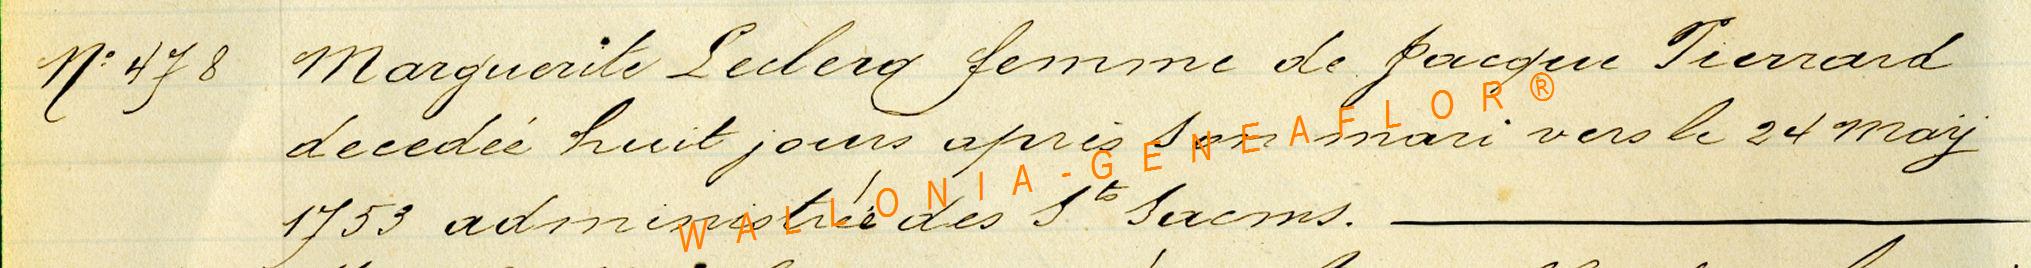 N° 478 Marguerite Leclerq femme de Jacque Tierrard
decedée huit jours après son mari vers le 24 maÿ
1753 administrée des Sts Sacms.
WALLONIA-GENEAFLOR®